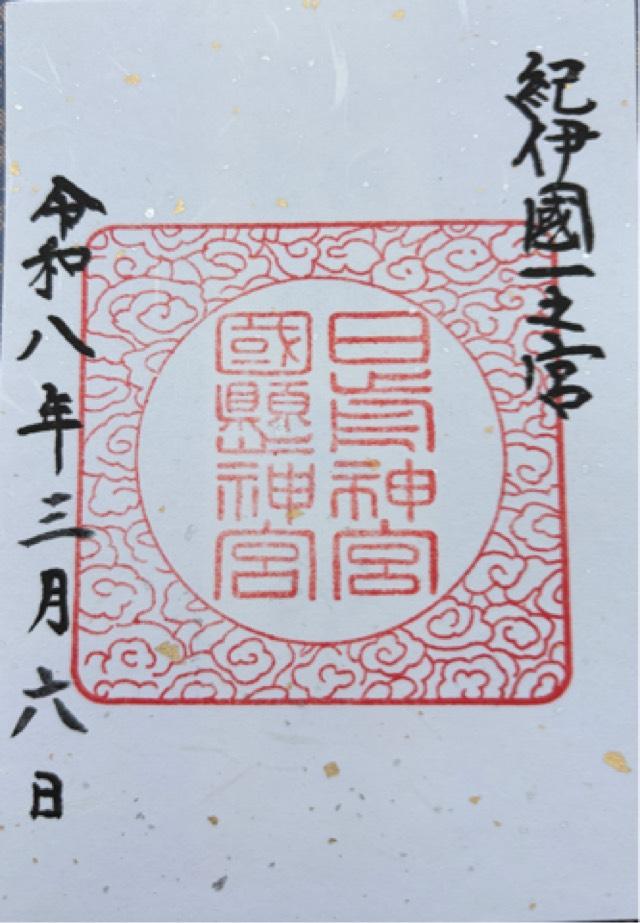 紀伊國一之宮
日前神宮
國懸神宮
令和八年三月六日